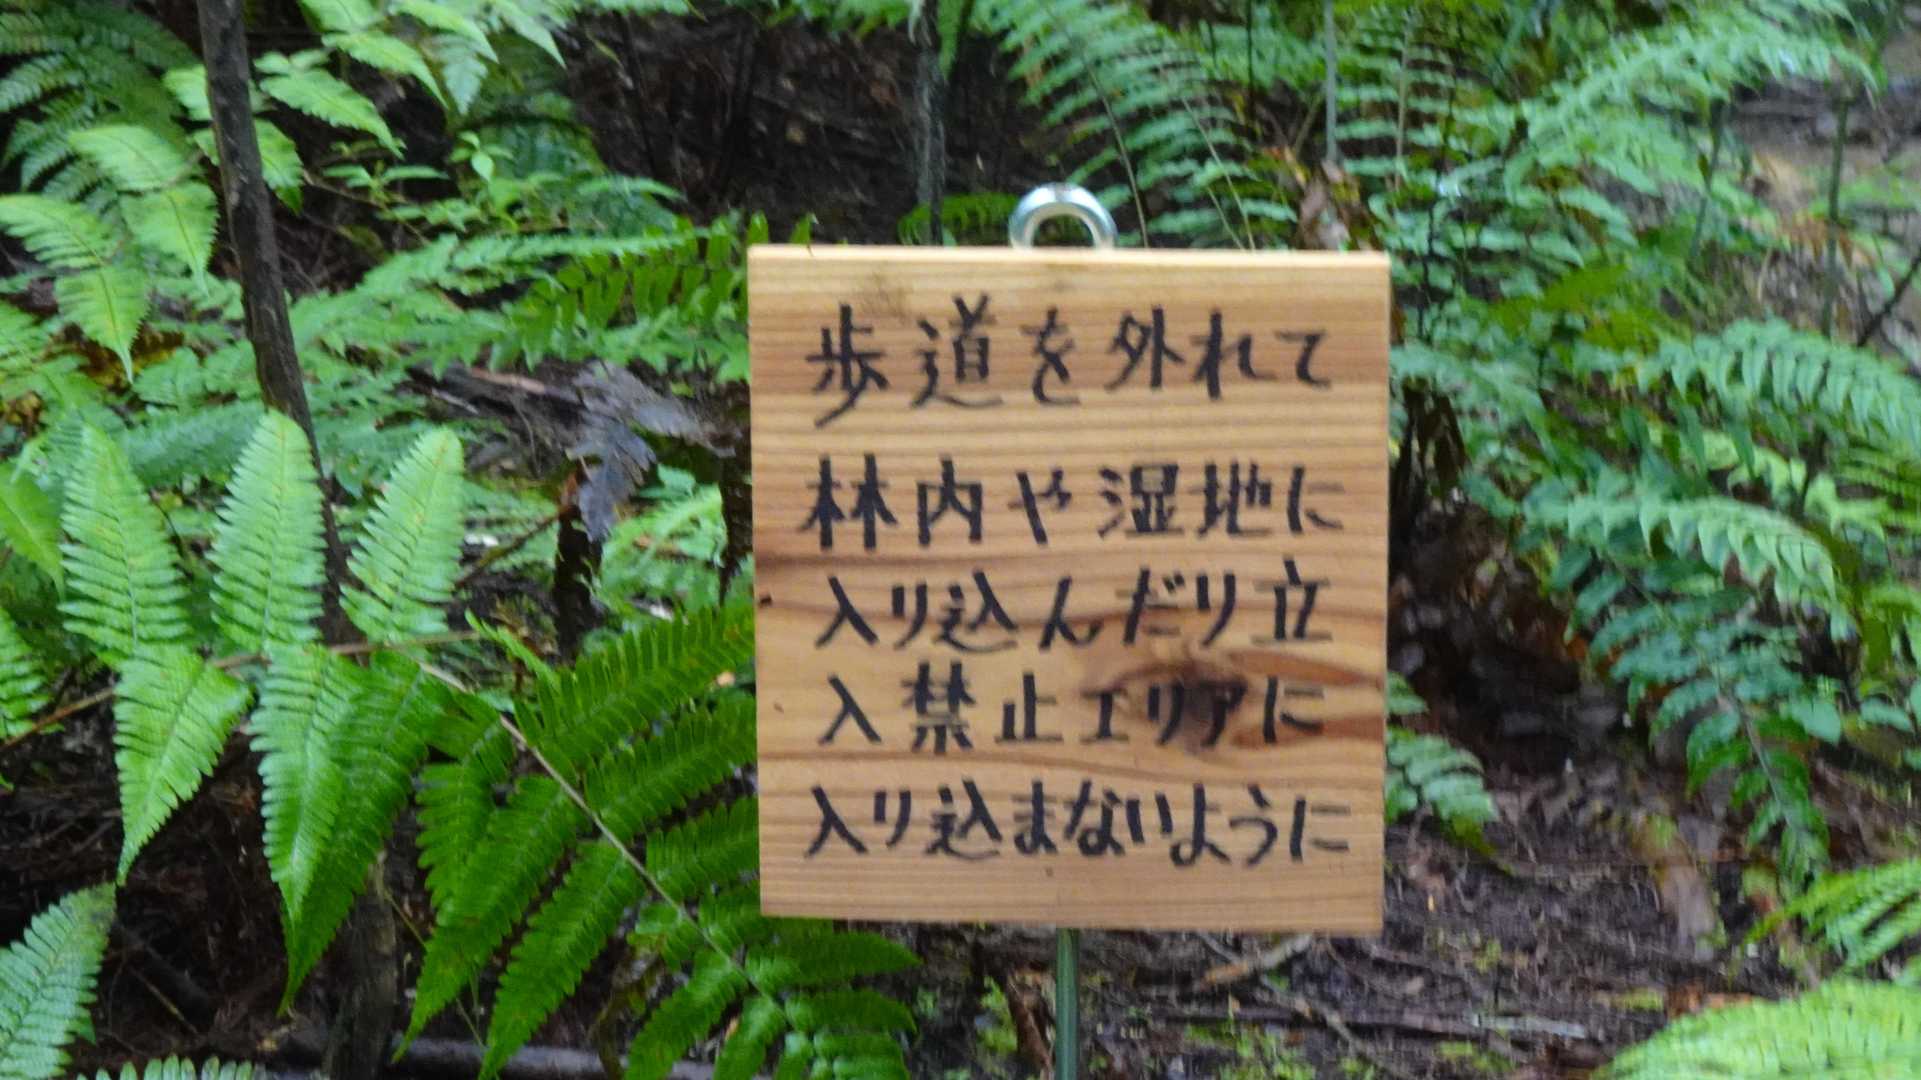 歩道を外れて
林内や湿地に
入り込んだり立
入禁止エリアに
入り込まないように